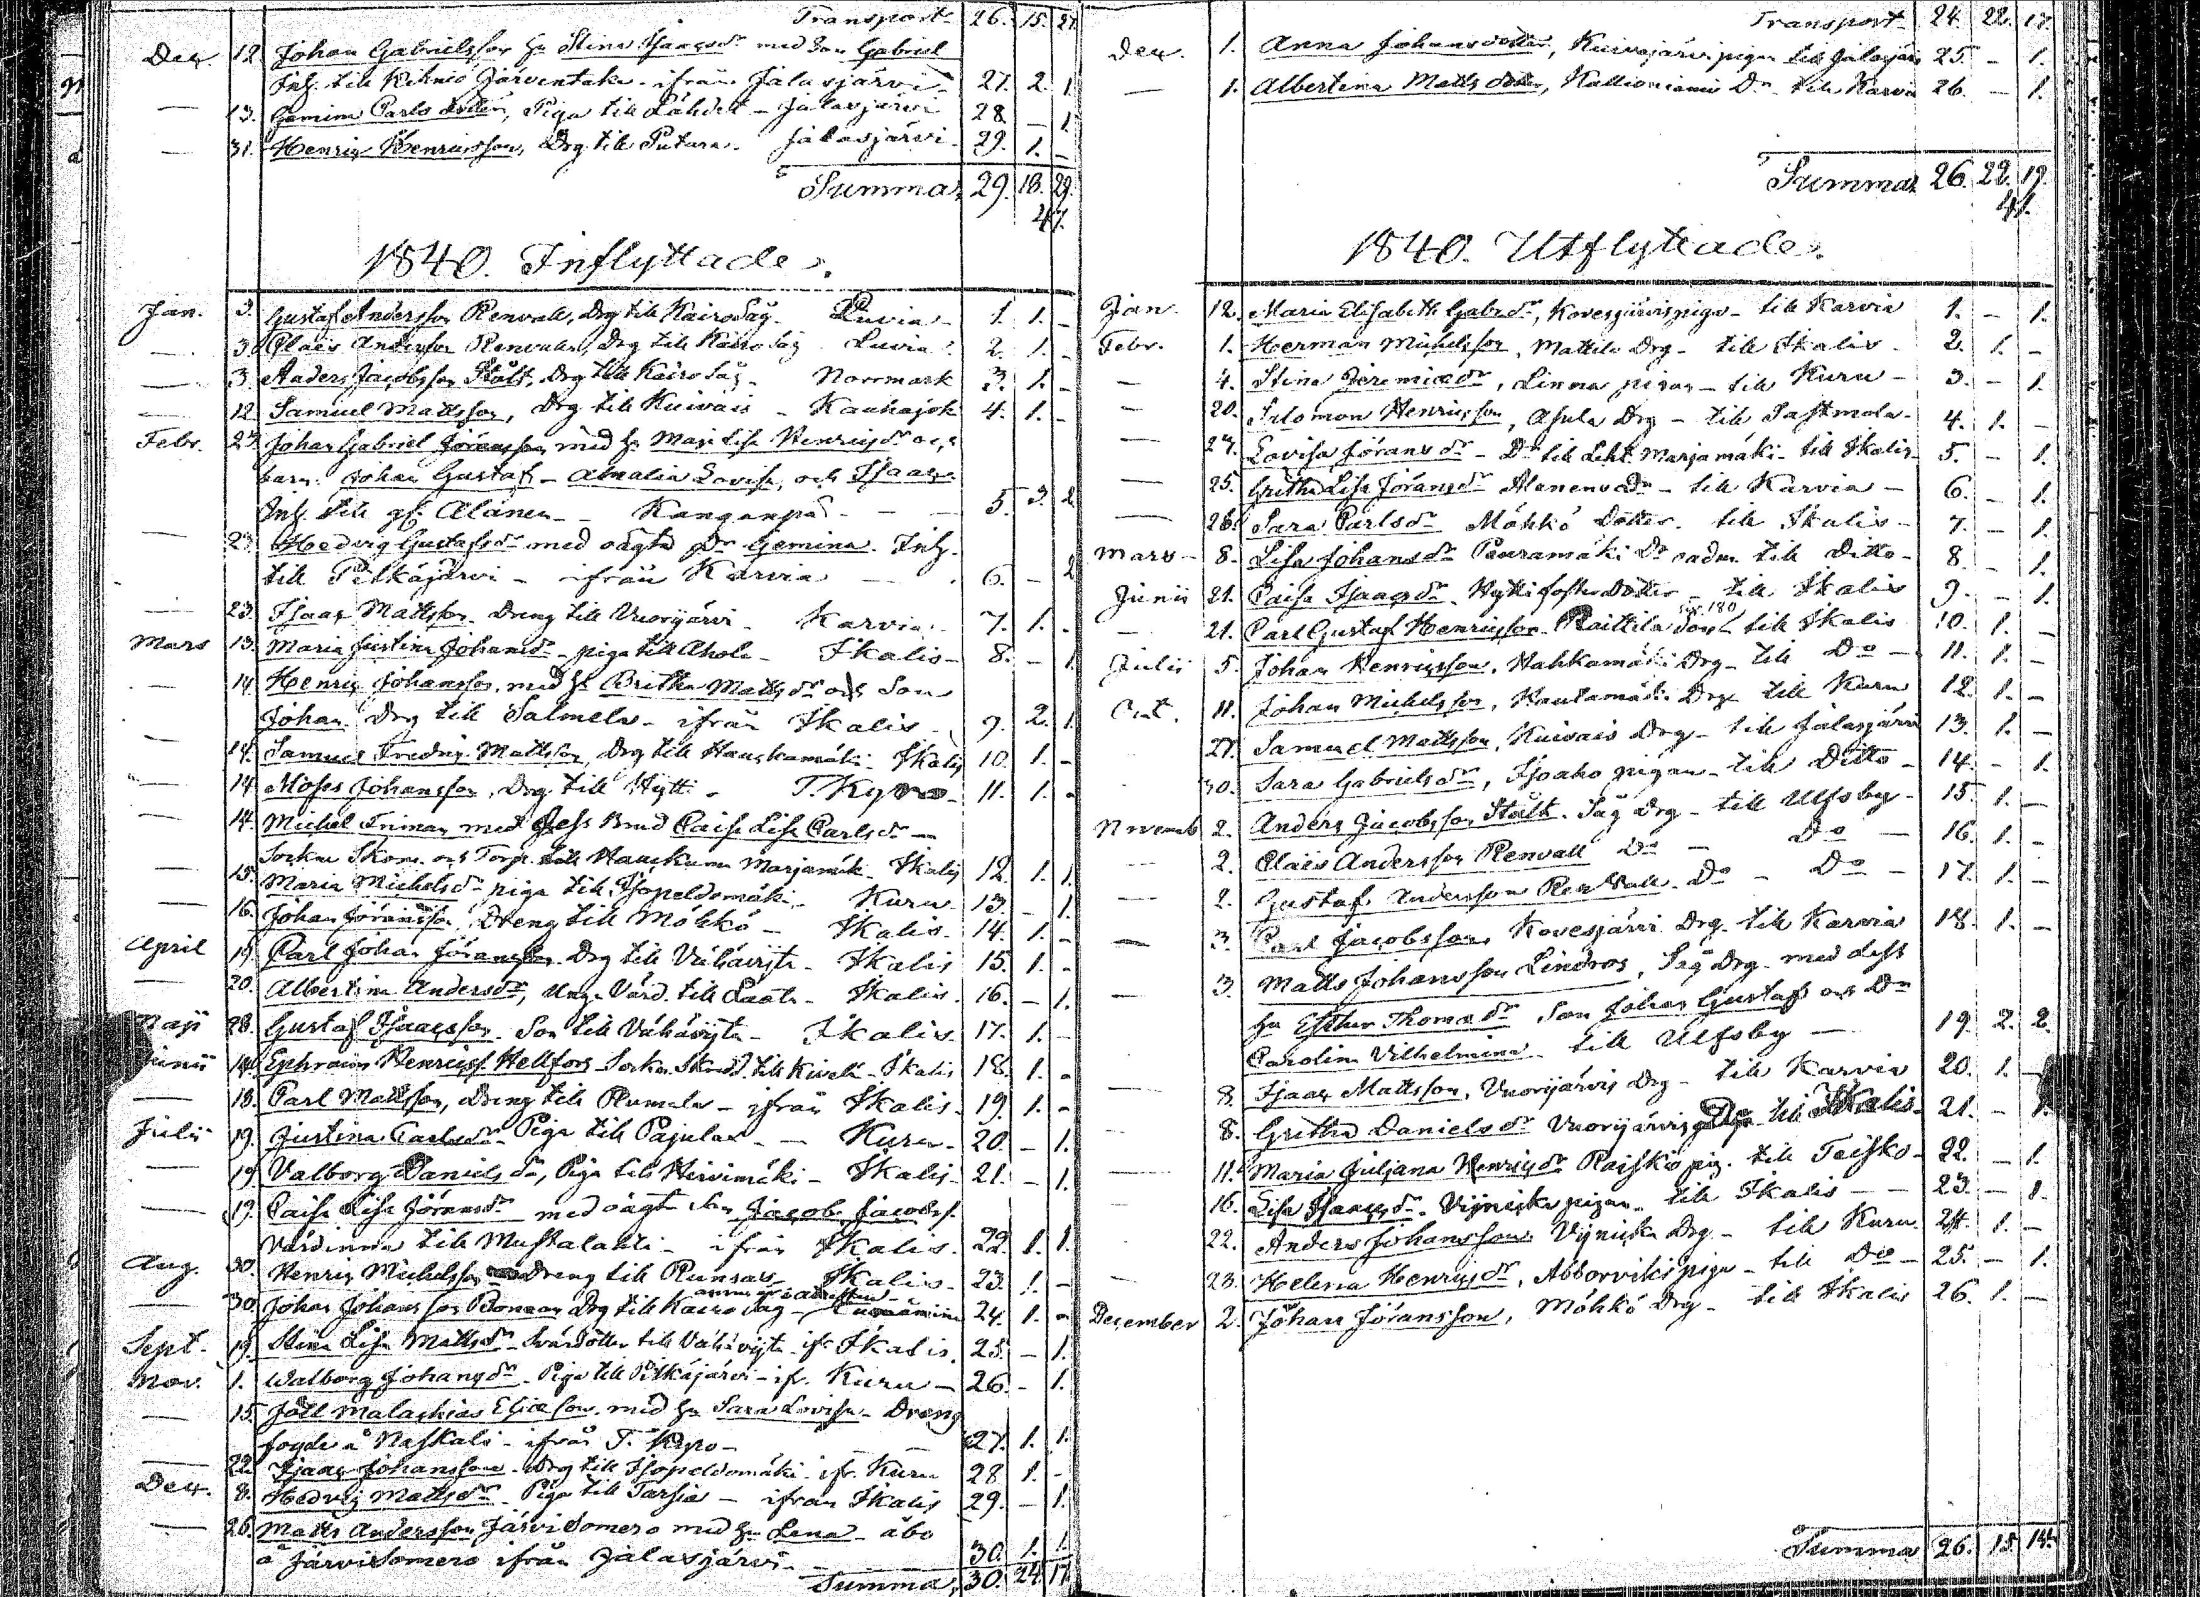 Transport 26. 15. 27.
Dec. 12. Johan Gabrielsson hu Stina Isaacsdr med son Gabriel
Inh. till Kihniö Järventaka ifrån Jalasjärvi 27. 2. 1.
— 13. Gemina Carls dotter, Piga till Lähdet - Jalasjärvi 28 — 1.
— 31. Henric Henricsson, Drg till Putara. Jalasjärvi. 29. 1. —
Summa, 29. 18. 29.
47.
1840. Inflyttade.
Jan. 3. Gustaf Andersson Renvall, Drg till Kairo Såg. Luvia 1. 1. —
— 3. Claës Andersson Renvall, Drg till Kairo Såg Luvia. 2. 1. —
— 3. Anders Jacobsson Stålt, Drg till Kairo Såg. Norrmark 3. 1. —
— 12. Samuel Mattsson, Drg till Kuivais - Kauhajok 4. 1. —
Febr. 23. Johan Gabriel Jöransson med hu Maja Lisa Henricsdr och
barn. Johan Gustaf - Amalia Lovisa, och Isaac
Inh. till Alanen - Kanganpä — 5. 3. 2
— 23. Hedvig Gustafsdr med oägta dr Gemina. Inh.
till Pitkäjärvi - ifrån Karvia — 6. — 2
— 23. Isaac Mattsson. Dreng till Vuorijärvi. Karvia. 7. 1. -
Mars 13. Maria Justina Johansdr piga till Ahola - Ikalis - 8. — 1.
— 14. Henric Johansson, med hu Britha Mattsdr och Son
Johan. Drg till Salmela - ifrån Ikalis - 9. 2. 1.
— 14. Samuel Fredric Mattsson, Drg till Hauskamäki - Ikalis 10. 1. —
— 14. Moses Johansson, Drg till Hytti - T. Kyro - 11. 1. -
— 14. Michel Friman med dess Brud Caisa Lisa Carlsdr —
Sockne Skom. och Torp. till Marjamäk. Ikalis 12. 1. 1.
— 15. Maria Michelsdr piga till Isopeldomäki - Kuru 13. — 1.
— 16. Johan Jöransson, Dreng till Möhkö - Ikalis. 14. 1. —
April 19. Carl Johan Jöransson Drg till Vähäröyta - Ikalis 15. 1. -
— 20. Albertina Andersdr, Unga Värd. till - Ikalis. 16. — 1.
Maji 28. Gustaf Isaacsson. Son till Vähäröyta - Ikalis. 17. 1. —
Junii 14. Ephraim Henricss. Hellfors Sockn. Skrädd. till Kivelä - Ikalis 18. 1. -
— 18. Carl Mattsson, Dreng till - ifrån Ikalis - 19. 1. -
Julii 19. Justina Carlsdr Piga till Pajulax — Kuru - 20. — 1.
— 19. Valborg Danielsdr, Piga till Hirvimäki - Ikalis - 21. — 1.
— 19. Caisa Lisa Jöransdr med oägta Son Jacob Jacobss.
Värdinna till Mustalahti - ifrån Ikalis. 22. 1. 1.
Aug. 30. Henric Michelsson Dreng till - Ikalis - 23. 1. —
— 30. Johan Johansson Drg till Kairo Såg - 24. 1. -
Sept. 19. Stina Lisa Mattsdr till Vähäröyta - ifr Ikalis. 25. — 1.
Nov. 1. Walborg Johansdr. Piga till Pitkäjärvi - if. Kuru - 26. - 1.
— 15. Joël Malachias Eliæ son. med hu Sara Lovisa - Dreng
fogde å Naskali - ifrån T. Kyro - 27. 1. 1.
— 22. Isaac Johansson. Drg till Isopeldomäki. ifr. Kuru 28 1. -
Dec. 8. Hedvig Mattsdr. Piga till Tarsia - ifrån Ikalis 29. — 1.
— 26. Matts Andersson Järvisomero med hu Lena - åbo
å Järvisomero ifrån Jalasjärvi - 30. 1. 1.
Summa, 30. 24. 17.
Transport 24. 22. 17.
Dec. 1. Anna Johansdotter, Kuivasjärvi pigan till Jalasjärvi 25. — 1.
— 1. Albertina Matts dotter, Kallioniemi Dn till Karvia 26. — 1.
Summa, 26. 22. 19.
41.
1840. Utflyttade.
Jan. 12. Maria Elisabeth Gabrdr, Kovesjärvis piga - till Karvia 1. — 1.
Febr. 1. Herman Michelsson, Mattila Drg - till Ikalis. 2. 1. —
— 4. Stina Jeremiædr, Linna pigan - till Kuru - 3. — 1.
— 20. Salomon Henricsson, Asula Drg - till Sastmola - 4. 1. —
— 24. Lovisa Jöransdr - Dn till Marjamäki - till Ikalis - 5. — 1.
— 25. Gretha Lisa Jöransdr Alanen - till Karvia - 6. — 1.
— 26. Sara Carlsdr Möhkö Dotter. till Ikalis - 7. — 1.
Mars 8. Lisa Johansdr Pouramäki Dr till Ditto - 8. — 1.
Junii 21. Caisa Isaacsdr Hytti foster Dotter - till Ikalis 9. — 1.
— 21. Carl Gustaf Henricsson Raittila Son till Ikalis 10. 1. —
Julii 5. Johan Henricsson, Hahkamäki Drg - till Do - 11. 1. —
Oct. 11. Johan Michelsson, Rautamäki Drg till Kuru 12. 1. —
27. Samuel Mattsson, Kuivais Drg - till Jalasjärvi 13. 1. —
30. Sara Gabrielsdr, Isoaho pigan - till Ditto - 14. — 1.
Novemb 2. Anders Jacobsson Stålt. Såg Drg - till Ulfsby - 15. 1. —
— 2. Claës Andersson Renvall Do - Do — 16. 1. —
— 2. Gustaf Andersson Renvall. Do - Do — 17. 1. —
— 3. Carl Jacobsson, Kovesjärvi Drg. till Karvia 18. 1. —
— 3. Matts Johansson Lindros, Såg Drg. med dess
hu Esther Thomædr Son Johan Gustaf och Dr
Carolina Vilhelmina till Ulfsby — 19. 2. 2.
— 8. Isaac Mattsson, Vuorijärvis Drg - till Karvia 20. 1. —
8. Gretha Danielsdr Vuorijärvis till Ikalis - 21. — 1.
— 11. Maria Juljana Henricsdr pig. till Teisko - 22. — 1.
— 16. Lisa Isaacsdr. pigan till Ikalis — 23. — 1.
22. Anders Johansson Drg - till Kuru 24. 1. —
— 23. Helena Henricsdr, Abborviks piga - till Do - 25. — 1.
December 2. Johan Jöransson, Möhkö Drg - till Ikalis 26. 1. —
Summa 26. 15. 14.